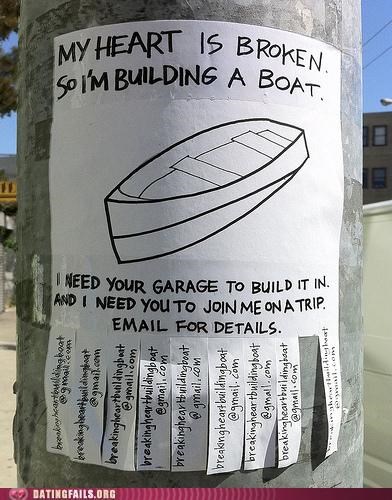 MY HEART IS BROKEN.
SO I'M BUILDING A BOAT.
I NEED YOUR GARAGE TO BUILD IT IN.
AND I NEED YOU TO JOIN ME ON A TRIP.
EMAIL FOR DETAILS.
breakingheartbuildingboat
@gmail.com
breakingheartbuildingboat
@gmail.com
breakingheartbuildingboat
@gmail.com
breakingheartbuildingboat
@gmail.com
breakingheartbuildingboat
@gmail.com
breakingheartbuildingboat
@gmail.com
breakingheartbuildingboat
@gmail.com
breakingheartbuildingboat
@gmail.com
breakingheartbuildingboat
@gmail.com
DATINGFAILS.ORG